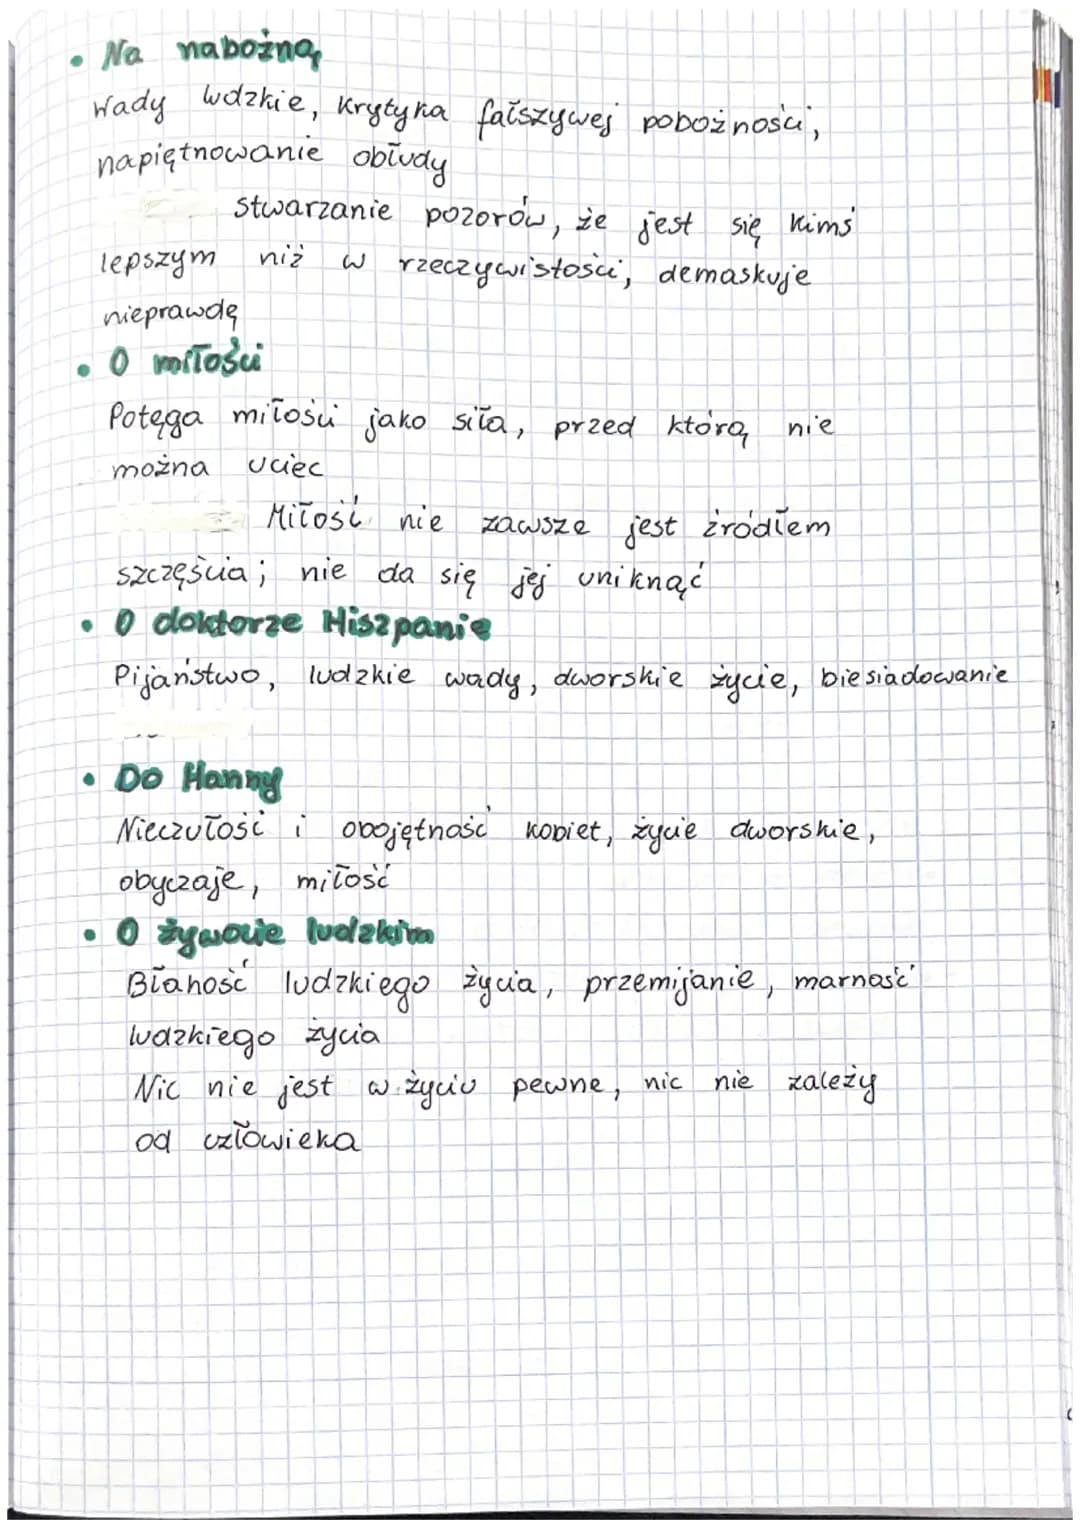 • Na nabożną
Wady ludzkie, krytyka fałszywej pobożności,
napiętnowanie obłudy
stwarzanie pozorów, że jest się kimś
lepszym niż w rzeczywistości, demaskuje
nieprawdę
• O miłości
Potęga miłości jako siła, przed którą nie
można uciec
Miłość nie zawsze jest źródłem
szczęścia; nie da się jej uniknąć
• O doktorze Hiszpanie
Pijaństwo, ludzkie wady, dworskie życie, biesiadowanie
• Do Hanny
Nieczułość i obojętność kobiet, życie dworskie,
obyczaje, miłość
• O żywocie ludzkim
Błahość ludzkiego życia, przemijanie, marność
ludzkiego życia
Nic nie jest w życiu pewne, nic nie zależy
od człowieka